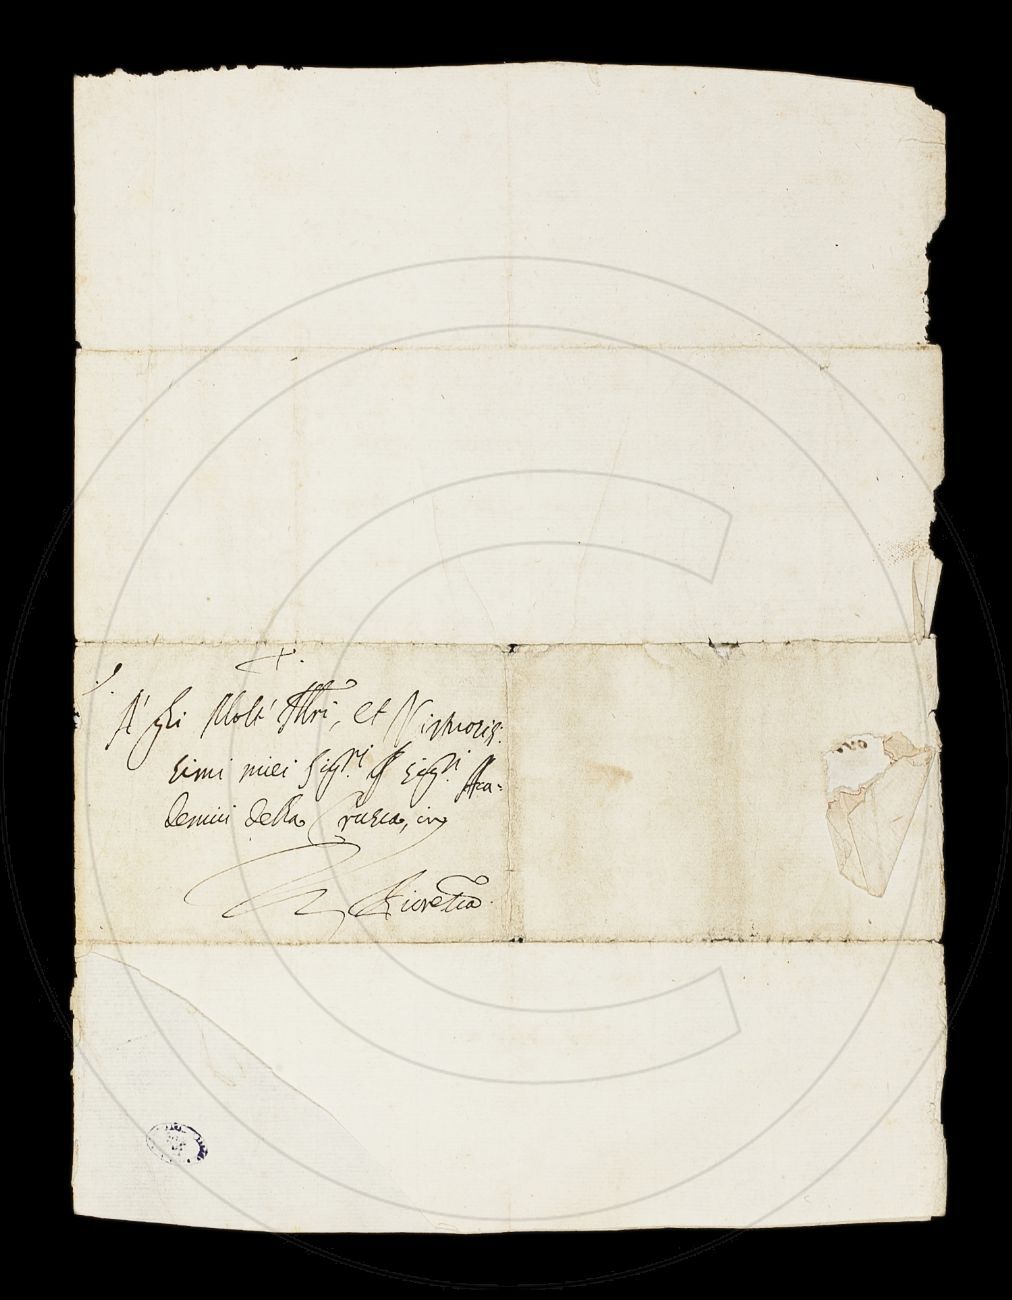 A' gli Molt' Ill.ri, et Virtuosis:
simi miei Sig.ri Sig.ri Aca-
demici della Crusca, in
Fiorenza.